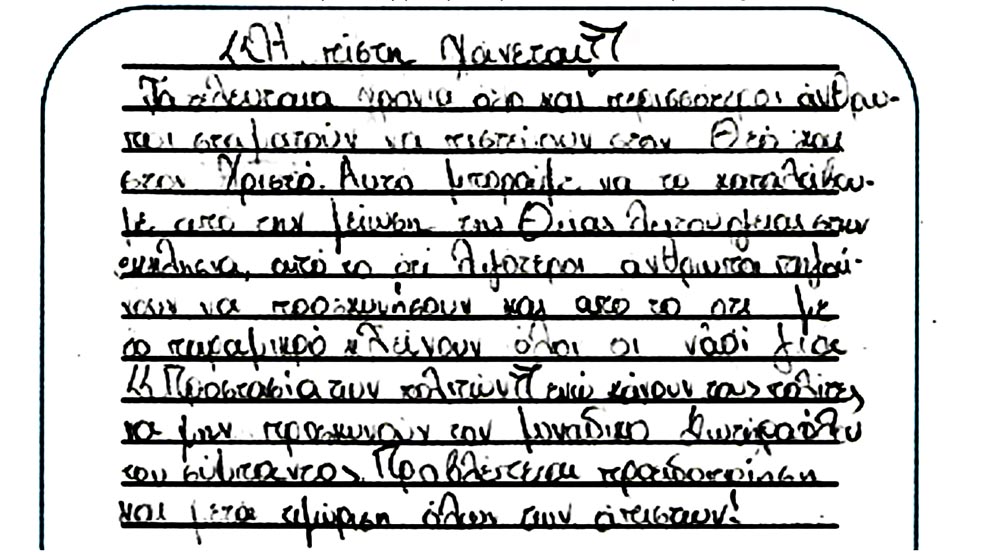 «Η πίστη χάνεται»
Τα τελευταία χρόνια όλο και περισσότεροι άνθρω-
ποι σταματούν να πιστεύουν στον Θεό και
στον Χριστό. Αυτό μπορούμε να το καταλάβου-
με από την μείωση της Θείας Λειτουργείας στην
εκκλησία, από το ότι λιγότεροι άνθρωποι πηγαί-
νουν να προσκυνήσουν και απο το οτι με
το παραμικρό κλείνουν όλοι οι νάοί για
«Προστασία των πολιτών» ενώ κάνουν τους πολίτες
να μην προσκυνούν τον μοναδικό
του σύμπαντος. Προβλέπεται προειδοποίηση
και μετά τιμώρηση όλων των άπιστων!